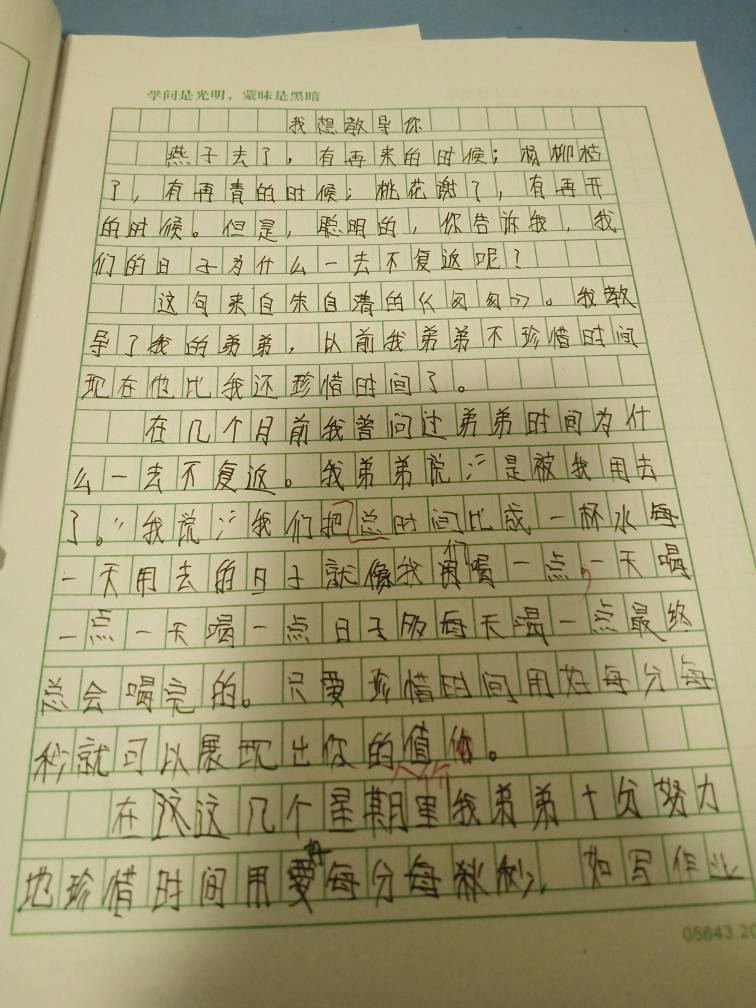 学问是光明，蒙昧是黑暗
我想教导你
燕子去了，有再来的时候；杨柳枯
了，有再青的时候；桃花谢了，有再开
的时候。但是，聪明的，你告诉我，我
们的日子为什么一去不复返呢？
这句来自朱自清的《匆匆》。我教
导了我的弟弟，以前我弟弟不珍惜时间
现在他比我还珍惜时间了。
在几个月前我曾问过弟弟时间为什
么一去不复返。我弟弟说：“是被我用去
了。”我说：“我们把总时间比成一杯水每
一天用去的日子就像我们喝一点，一天喝
一点一天喝一点日子的每天喝一点最终
总会喝完的。只要珍惜时间用好每分每
秒就可以展现出你的价值。
在这这几个星期里我弟弟十分努力
地珍惜时间用好每分每秒，如写作业
05643.20